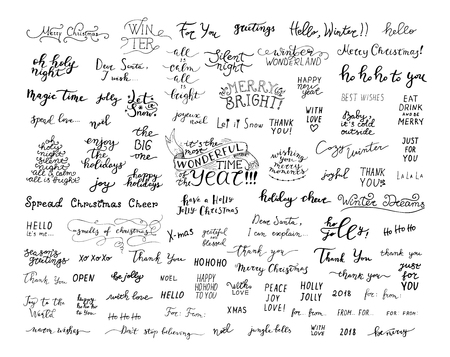 Merry Christmas
WINTER
For You
greetings
Hello, Winter!!
hello
oh holy night
Dear Santa, I wish...
all is calm all is bright
Silent night
winter WONDERLAND
Merry Christmas!
HAPPY new year
ho ho ho to you
Magic Time
jolly
Let it Snow!
MERRY & BRIGHT!
BEST WISHES
EAT DRINK AND BE MERRY
Spread love...
noel
joyeux noël
Let it Snow
THANK YOU!
WITH LOVE
Baby, it's cold outside
oh holy night silent night all is calm all is bright
enjoy the holidays
the BIG one
it's the most WONDERFUL TIME of the Year!!!
wishing you Merry moments
Cozy winter
JUST FOR YOU
joy
happy holidays
joyful
THANK YOU
LALALA
Spread Christmas Cheer
have a Holly Jolly Christmas
holiday cheer
Winter Dreams
HELLO it's me...
smells of christmas
X-mas
grateful blessed
Dear Santa, I can explain...
holly jolly
Ho Ho Ho
season's greetings
XO XO XO
Thank You
HOHOHO
Thank you
Thank You
thank you
Thank You
OPEN
be jolly
NOEL
HAPPY HOHOHO TO YOU
Merry Christmas
thank you
just for YOU
Joy to the World
happy hoho to You
with love
HELLO
WITH LOVE
PEACE JOY LOVE!
HOLLY JOLLY
2018
for: from:
Ho Ho Ho
For: From:
XMAS
for: from:
FROM: FOR:
For From
warm wishes
Don't stop believing
noel
jingle bells
WITH LOVE
2018
be merry